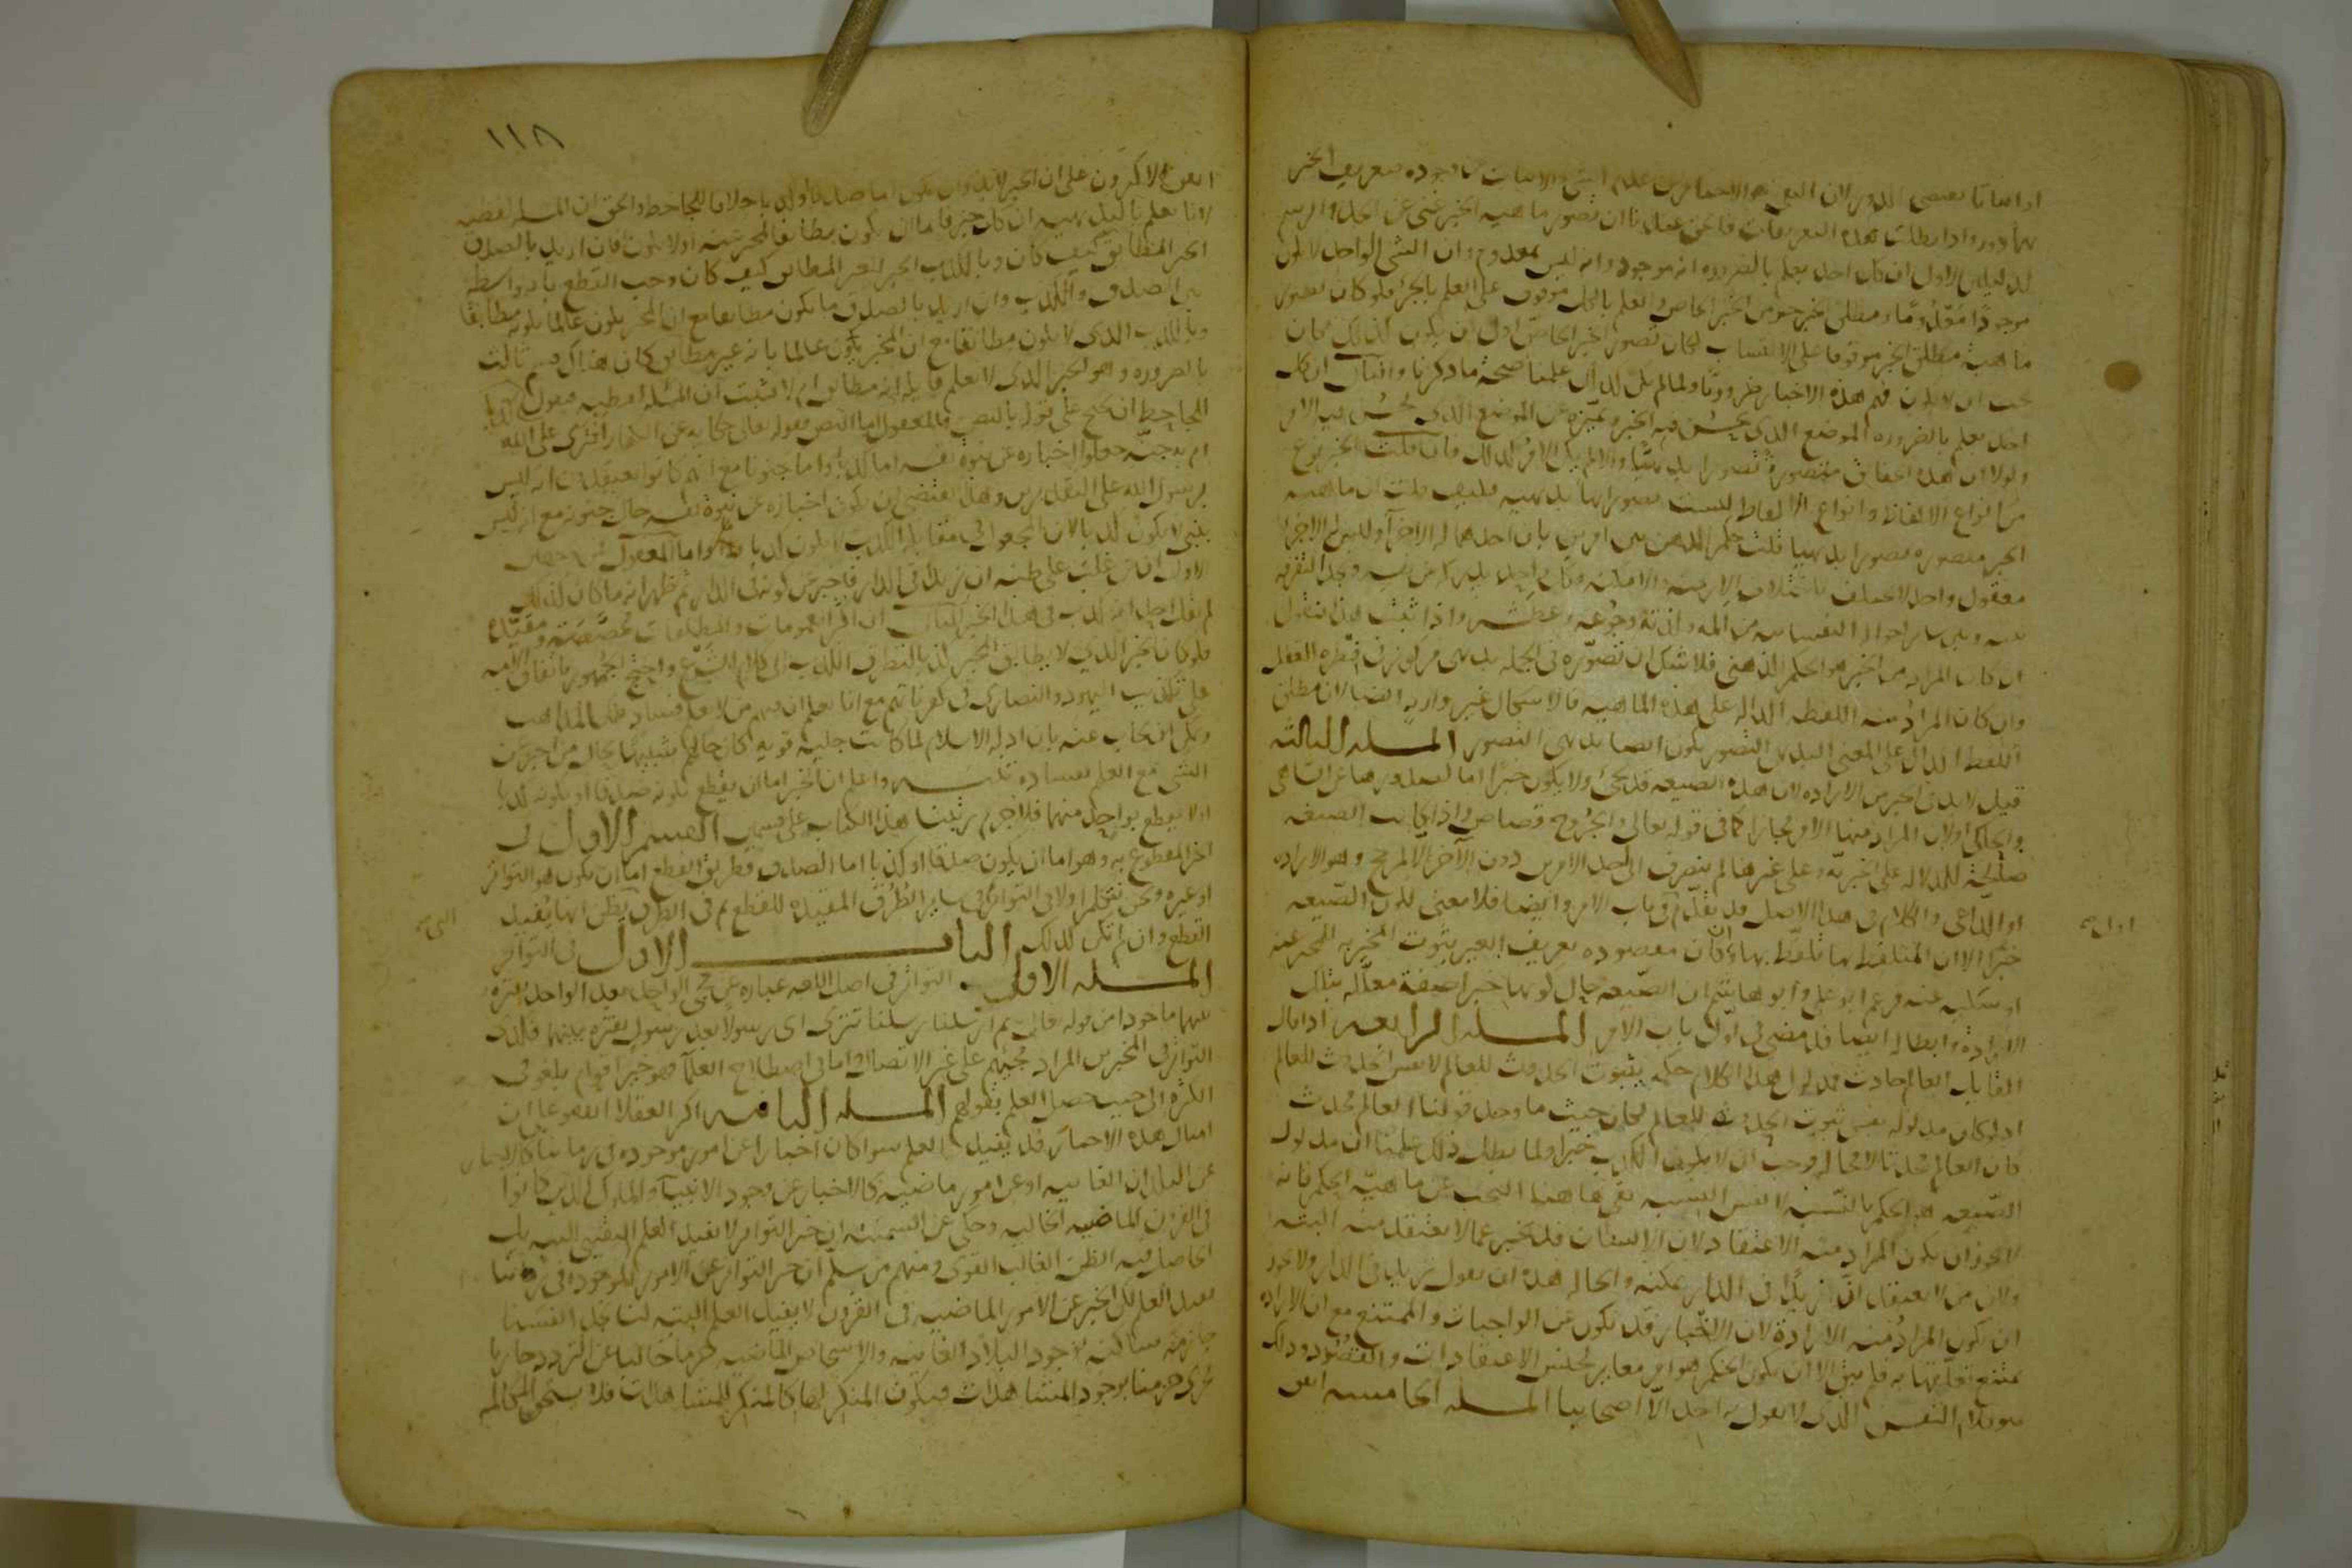 اذا نفيا يقتضى الدور لان النفى هو الاخبار عن عدم الشى والاثبات عن وجوده فتعريف الخبر
بهما دور واذا بطلت هذه التعريفات فالحق عندنا ان تصور ماهية الخبر غنى عن الحد والرسم
لدليلين الاول ان كل احد يعلم بالضرورة انه موجود وانه ليس بمعدوم وان الشى الواحد لا يكون
موجودا معدوما ومطلق الخبر جزو من الخبر الخاص والعلم بالكل موقوف على العلم بالجزء فلو كان تصور
ماهية مطلق الخبر موقوفا على الاكتساب لكان تصور الخبر الخاص اولى ان يكون كذلك فكان
يجب ان لا يكون فهم هذه الاخبار ضروريا ولما لم يكن كذلك علمنا صحة ما ذكرنا والثانى ان كل
احد يعلم بالضرورة الموضع الذى يحسن فيه الخبر ويميزه عن الموضع الذى يحسن فيه الامر
ولولا ان هذه الحقائق متصورة تصورا بديهيا والا لم يكن الامر كذلك فان قلت الخبر نوع
من انواع الالفاظ وانواع الالفاظ ليست تصوراتها بديهية فكيف قلت ان ماهية
الخبر متصورة تصورا بديهيا قلت حكم الذهن بين امرين بان احدهما له الاخر او ليس له الاخر
معقول واحد لا يختلف باختلاف الازمنة والامكنة وكل احد يدرك من نفسه ويجد التفرقة
بينه وبين ساير احواله النفسانية من المه ولذته وجوعه وعطشه واذا ثبت هذا فنقول
ان كان المراد من الخبر هو الحكم الذهنى فلا شك ان تصوره فى الجملة بديهى مركوز فى فطرة العقل
وان كان المراد منه اللفظة الدالة على هذه الماهية فالاشكال غير وارد ايضا لان مطلق
اللفظ الدال على المعنى البديهى التصور يكون ايضا بديهى التصور المسئلة الثالثة
قيل لا بد فى الخبر من الارادة لان هذه الصيغة قد تجى ولا يكون خبرا اما لصدورها عن الساهى
والحاكى او لان المراد منها الامر مجازا كما فى قوله تعالى والجروح قصاص واذا كانت الصيغة
صالحة للدلالة على الخبرية وعلى غيرها لم ينصرف الى احد الامرين دون الاخر الا لمرجح وهو الارادة
او الداعى والكلام فى هذا الاصل قد تقدم فى باب الامر وايضا فلا معنى لكون الصيغة
خبرا الا ان المتلفظ بها تلفظ بها وكان مقصوده تعريف الغير ثبوت المخبر به للمخبر عنه
او سلبه عنه وزعم ابو على وابو هاشم ان الصيغة حال كونها خبرا صفة معللة بتلك
الارادة وابطاله ايضا قد مضى فى اول باب الامر المسئلة الرابعة اذا قال
القايل العالم حادث فمدلول هذا الكلام حكمه بثبوت الحدوث للعالم لا نفس الحدوث للعالم
اذ لو كان مدلوله نفس ثبوت الحدوث للعالم لكان حيث ما وجد قولنا العالم محدث
كان العالم محدثا لا محالة فوجب ان لا يكون الكذب خبرا ولما بطل ذلك علمنا ان مدلول
الصيغة هو الحكم بالنسبة لا نفس النسبة بقى هاهنا البحث عن ماهية الحكم فانه
لا يجوز ان يكون المراد منه الاعتقاد لان الانسان قد يخبر عما لا يعتقد منه البتة
ولان من لا يعتقد ان زيدا فى الدار يمكنه والحالة هذه ان يقول زيد فى الدار ولا يجوز
ان يكون المراد منه الارادة لان الاخبار قد يكون عن الواجبات والممتنع مع ان الارادة
يمتنع تعلقها به فلم يبق الا ان يكون الحكم هو امر مغاير لجنس الاعتقادات والقصود وذلك
هو كلام النفس الذى لا يقول به احد الا اصحابنا المسئلة الخامسة اتفق
اول
١١٨
اتفق الاكثرون على ان الخبر لا بد وان يكون اما صدقا او كذبا خلافا للجاحظ والحق ان المسئلة لفظية
لانا نعلم بالبديهية ان كل خبر فاما ان يكون مطابقا للمخبر عنه او لا يكون فان اريد بالصدق
الخبر المطابق كيف كان وبالكذب الخبر الغير المطابق كيف كان وجب القطع بانه لا واسطة
بين الصدق والكذب وان اريد بالصدق ما يكون مطابقا مع ان المخبر يكون عالما بكونه مطابقا
وبالكذب الذى لا يكون مطابقا مع ان المخبر يكون عالما بانه غير مطابق كان هناك قسم ثالث
بالضرورة وهو الخبر الذى لا يعلم قايله انه مطابق ام لا فثبت ان المسئلة لفظية
الجاحظ ان يحتج على قوله بالنص والمعقول اما النص فقوله تعالى حكاية عن الكفار افترى على الله
ام به جنة جعلوا اخباره عن نبوة نفسه اما كذبا واما جنونا مع انهم كانوا يعتقدون انه ليس
برسول الله على التقديرين وهذا يقتضى ان يكون اخباره عن نبوة نفسه حال جنونه مع انه ليس
بنبى لا يكون كذبا لان المجعول فى مقابلة الكذب لا يكون كذبا واما المعقول فمن وجهين
الاول ان من غلب على ظنه ان زيدا فى الدار فاخبر عن كونه فى الدار ثم ظهر انه ما كان كذلك
لم يقل احد انه كذب فى هذا الخبر الثانى ان اكثر العمومات والمطلقات مخصصة ومقيدة
فلو كان الخبر الذى لا يطابق المخبر كذبا لتطرق الكذب الى كلام الشرع واحتج الجمهور باتفاق الامة
على تكذيب اليهود والنصارى فى كفرياتهم مع انا نعلم ان فيهم من لا يعلم فساد تلك المذاهب
ويمكن ان يجاب عنه بان ادلة الاسلام لما كانت جلية قوية كان حالهم شبيها بحال من اخبر عن
الشى مع العلم بفساده تنبيه واعلم ان الخبر اما ان يقطع بكونه صدقا او بكونه كذبا
او لا يقطع بواحد منهما فلا جرم رتبنا هذا الكتاب على قسمين القسم الاول فى
الخبر المقطوع به وهو اما ان يكون صدقا او كذبا اما الصدق فطريق القطع اما ان يكون هو التواتر
او غيره ونحن نتكلم اولا فى التواتر ثم فى ساير الطرق المفيدة للقطع ثم فى الطرق يظن انها تفيد
القطع وان لم تكن كذلك الباب الاول فى التواتر
المسئلة الاولى التواتر فى اصل اللغة عبارة عن مجى الواحد بعد الواحد بفترة
بينهما ماخوذا من قوله تعالى ثم ارسلنا رسلنا تترى اى رسولا بعد رسول بفترة بينهما فكذى
التواتر فى المخبرين المراد مجيئهم على غير الاتصال واما فى اصطلاح العلماء فهو خبر اقوام بلغوا فى
الكثرة الى حيث حصل العلم بقولهم المسئلة الثانية اكثر العقلاء اتفقوا على ان
امثال هذه الاخبار قد يفيد العلم سوا كان اخبارا عن امور موجودة فى زماننا كالاخبار
عن البلدان الغايبة او عن امور ماضية كالاخبار عن وجود الانبياء والملوك الذين كانوا
فى القرون الماضية الخالية وحكى عن السمنية ان خبر التواتر لا يفيد العلم اليقينى البتة بل
الحاصل فيه الظن الغالب القوى ومنهم من سلم ان خبر التواتر عن الامور الموجودة فى زماننا
يفيد العلم لكن الخبر عن الامور الماضية فى القرون لا يفيد العلم البتة لنا نجد انفسنا
جازمة ساكنة بوجود البلاد الغايبة والاشخاص الماضية جزما خاليا عن التردد جاريا
مجرى جزمنا بوجود المشاهدات فيكون المنكر لها كالمنكر للمشاهدات فلا يستحق المكالمة
التى